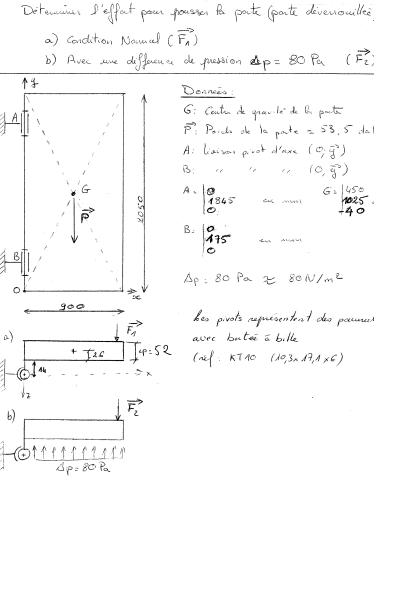 Déterminer l'effort pour pousser la porte (porte déverrouillée
a) Condition Normal (F₁)
b) Avec une différence de pression Δp = 80 Pa (F₂)
Données:
G: Centre de gravité de la porte
P: Poids de la porte = 53,5 daN
A: liaison pivot d'axe (O, y)
B: " " " (O, y)
A = 0 1845 0 en mm
G = 450 1025 -40
B = 0 175 0 en mm
Δp = 80 Pa ≈ 80 N/m²
Les pivots représentent des paumelles
avec butée à bille
(réf: KT10 (10,3x17,1x6)
y
A
G
P
2050
B
O
x
900
a)
F₁
+
26
ep=52
14
x
z
b)
F₂
Δp=80 Pa